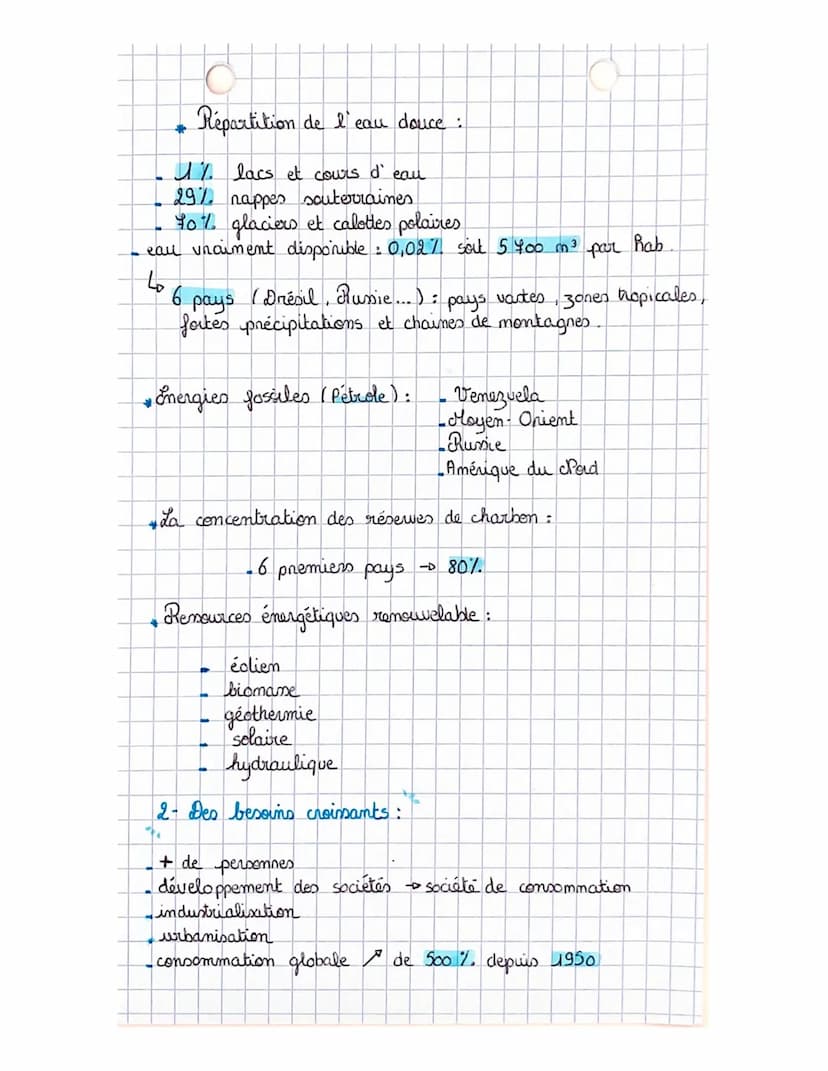 * Répartition de l'eau douce :
- 1% lacs et cours d'eau
- 29% nappes souterraines
- 70% glaciers et calottes polaires
- eau vraiment disponible : 0,02% soit 5 700 m³ par hab.
↳ 6 pays (Brésil, Russie...) : pays vastes, zones tropicales,
fortes précipitations et chaines de montagnes.
* Énergies fossiles (Pétrole) : - Venezuela
- Moyen-Orient
- Russie
- Amérique du Nord
* La concentration des réserves de charbon :
- 6 premiers pays → 80%
* Ressources énergétiques renouvelable :
- éolien
- biomasse
- géothermie
- solaire
- hydraulique
2- Des besoins croissants :
- + de personnes
- développement des sociétés → société de consommation
- industrialisation
- urbanisation
- consommation globale ↗ de 500% depuis 1950